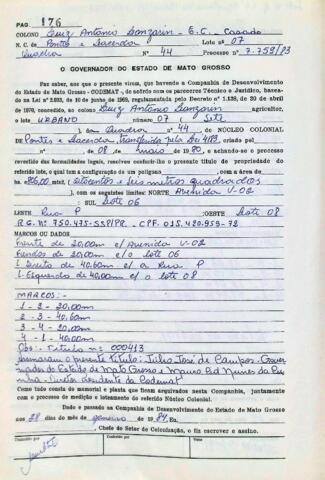 PAG. 176
COLONO Luiz Antonio Lonzarin - E.C. Casado
N. C. de Pontes e Lacerda Lote nº 07
Quadra Nº 44 Processo nº 7.758/83
O GOVERNADOR DO ESTADO DE MATO GROSSO
Faz saber, aos que o presente virem, que havendo a Companhia de Desenvolvimento
do Estado de Mato Grosso - CODEMAT -, de acôrdo com os pareceres Técnico e Jurídico, basea-
do na Lei nº 2.033, de 10 de junho de 1963, regulamentada pelo Decreto nº 1.138, de 20 de abril
de 1970, concedido, ao colono Luiz Antonio Lonzarin agricultor,
o lote URBANO número 07 ( Sete
), sm Quadra nº 44, DO NÚCLEO COLONIAL
de Pontes e Lacerda, transferida pela Lei 4183, criado
pela nº de 08 de maio de 1980, estando-se o processo
revestido das formalidades legais, resolveu conferir-lhe o presente título de propriedade
do referido lote, que tem a configuração de um polígono com a área de
ha 806,00 mts (Oitocentos e seis metros quadrados
), com os seguintes limites: NORTE Avenida V-02
SUL Lote 06
LESTE Rua P OESTE Lote 08
R.G. Nº 750.475-SSP/PR - CPF. 015.420.959-72
MARCOS OU DADOS
Frente de 20,00m c/ Avenida V-02
Fundos de 20,00m c/ o lote 06
L. Direito de 40,60m c/ a Rua P
L. Esquerdo de 40,60m c/ o lote 08
MARCOS:-
1 - 2 - 20,00m
2 - 3 - 40,60m
3 - 4 - 20,00m
4 - 1 - 40,60m
Obs: Título nº: 000413
Assinaram o presente título: Júlio José de Campos - Gover-
nador do Estado de Mato Grosso e Mauro Cid Nunes da Cu-
nha - Diretor Presidente da Codemat
Como tudo consta do memorial e planta que ficam arquivados nesta Companhia, juntamente
com o processo de medição e loteamento do referido Núcleo Colonial.
Dado e passado na Companhia de Desenvolvimento do Estado de Mato Grosso
aos 28 dias do mês de janeiro de 1984. Eu,
Chefe do Setor de Colonização, o fiz escrever e assino.